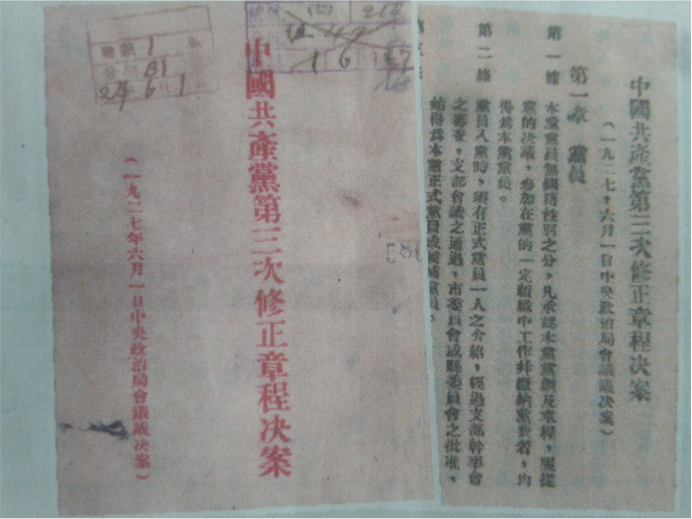 中國共產黨第三次修正章程決案
(一九二七年六月一日中央政治局會議議決案)
中國共產黨第三次修正章程決案
(一九二七，六月一日中央政治局會議議決案)
第一章 黨員
第一條 本黨黨員無國籍性別之分，凡承認本黨黨綱及章程，服從
黨的決議，參加在黨的一定組織中工作幷繳納黨費者，均
得為本黨黨員。
第二條 黨員入黨時，須有正式黨員一人之介紹，經過支部幹事會
之審查，支部會議之通過，市委員會或縣委員會之批准，
始得為本黨正式黨員或候補黨員。